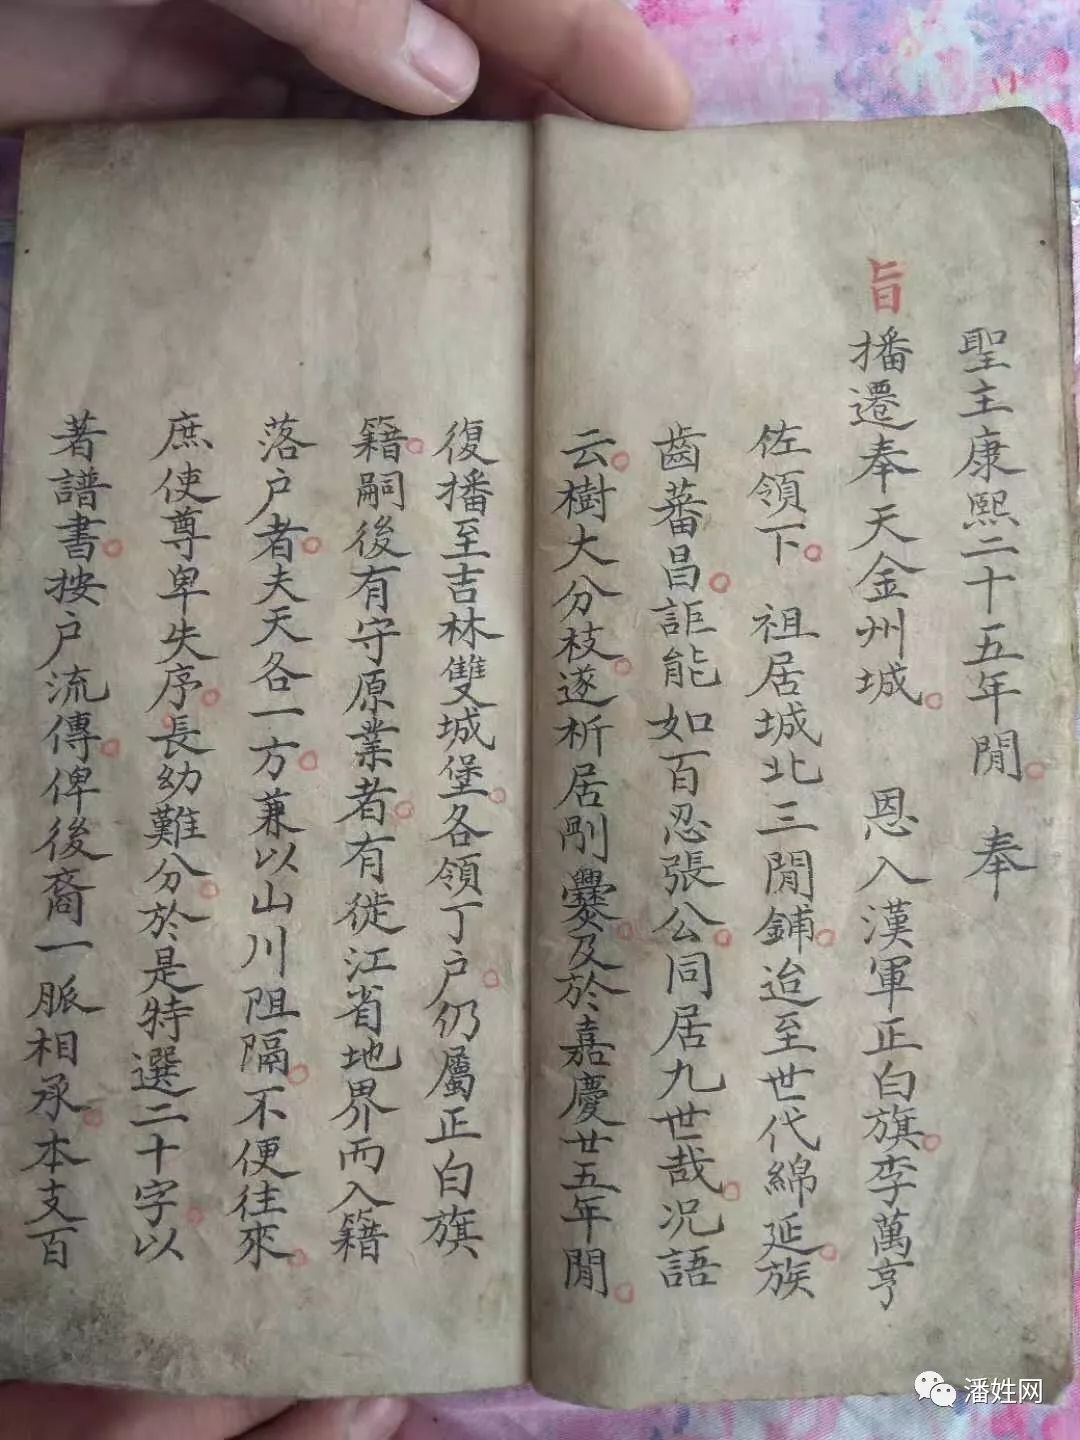 聖主康熙二十五年間。奉
旨播遷奉天金州城。恩入漢軍正白旗。李萬亨
佐領下。祖居城北三間鋪。迨至世代綿延。族
齒蕃昌。詎能如百忍張公。同居九世哉。况語
云。樹大分枝。遂析居剛爨。及於嘉慶廿五年間。
復播至吉林雙城堡。各領丁户。仍屬正白旗
籍。嗣後有守原業者。有徙江省地界而入籍
落户者。夫天各一方。兼以山川阻隔。不便往來。
庶使尊卑失序。長幼難分。於是特選二十字。以
著譜書。按户流傳。俾後裔一脈相承。本支百
潘姓网